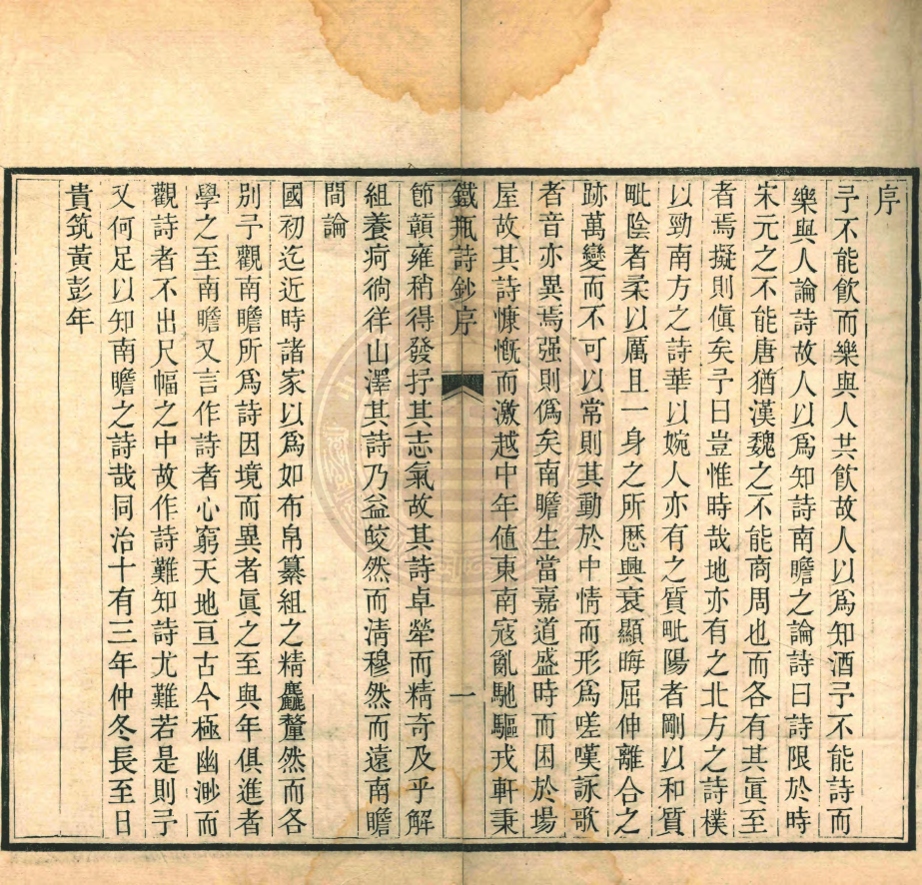 序
予不能飲而樂與人共飲故人以爲知酒予不能詩而
樂與人論詩故人以爲知詩南瞻之論詩曰詩限於時
宋元之不能唐猶漢魏之不能商周也而各有其眞至
者焉擬則傎矣予曰豈惟時哉地亦有之北方之詩樸
以勁南方之詩華以婉人亦有之質毗陽者剛以和質
毗陰者柔以厲且一身之所歷興衰顯晦屈伸離合之
跡萬變而不可以常則其動於中情而形爲嗟嘆詠歌
者音亦異焉强則僞矣南瞻生當嘉道盛時而困於場
屋故其詩慷慨而激越中年値東南寇亂馳驅戎軒秉
鐵瓶詩鈔序 一
節顧雍稍得發抒其志氣故其詩卓犖而精奇及乎解
組養疴徜徉山澤其詩乃益皎然而淸穆然而遠南瞻
間論
國初迄近時諸家以爲如布帛纂組之精麤釐然而各
別予觀南瞻所爲詩因境而異者眞之至與年俱進者
學之至南瞻又言作詩者心窮天地亘古今極幽渺而
觀詩者不出尺幅之中故作詩難知詩尤難若是則予
又何足以知南瞻之詩哉同治十有三年仲冬長至日
貴筑黃彭年